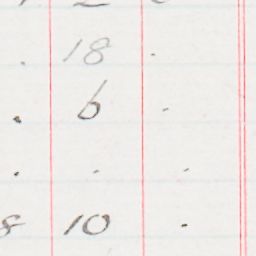 . 18 .
. 6 .
. . .
8 10 .